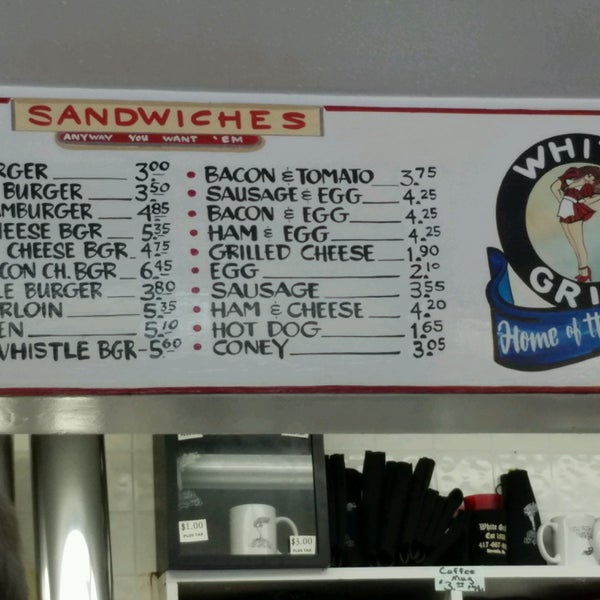 SANDWICHES
ANYWAY YOU WANT 'EM
RGER 3.00
BURGER 3.50
MBURGER 4.85
HEESE BGR 5.35
CHEESE BGR. 4.75
CON CH. BGR 6.45
LE BURGER 3.80
RLOIN 5.35
EN 5.10
WHISTLE BGR- 5.60
• BACON & TOMATO 3.75
• SAUSAGE & EGG 4.25
• BACON & EGG 4.25
• HAM & EGG 4.25
• GRILLED CHEESE 1.90
• EGG 2.10
• SAUSAGE 3.55
• HAM & CHEESE 4.20
• HOT DOG 1.65
• CONEY 3.05
WHIT
GRI
Home of th
$1.00
PLUS TAX
$3.00
PLUS TAX
White Gri
417-667-
Coffee
Mug